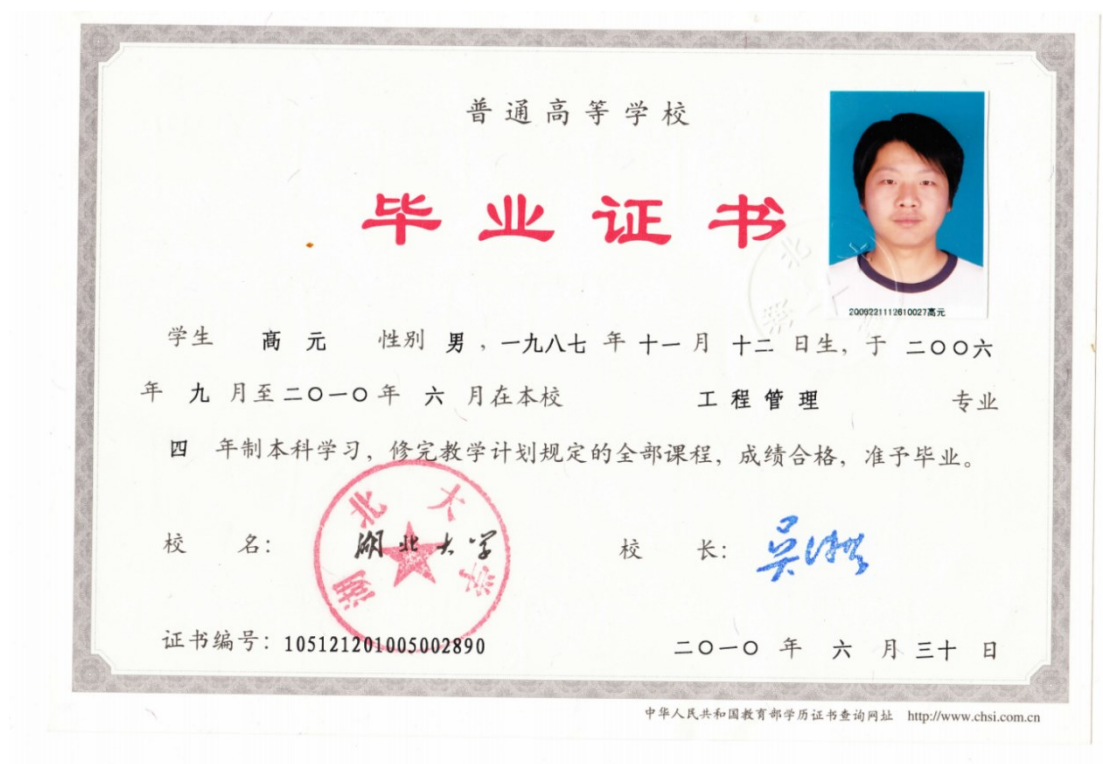 普通高等学校
毕业证书
2006221112610027高元
学生 高元 性别 男，一九八七 年 十一 月 十二 日生，于 二〇〇六
年 九 月至二〇一〇年 六 月在本校 工程管理 专业
四 年制本科学习，修完教学计划规定的全部课程，成绩合格，准予毕业。
校 名：湖北大学
湖北大学
校 长：
证书编号：105121201005002890
二〇一〇 年 六 月 三十 日
中华人民共和国教育部学历证书查询网址 http://www.chsi.com.cn